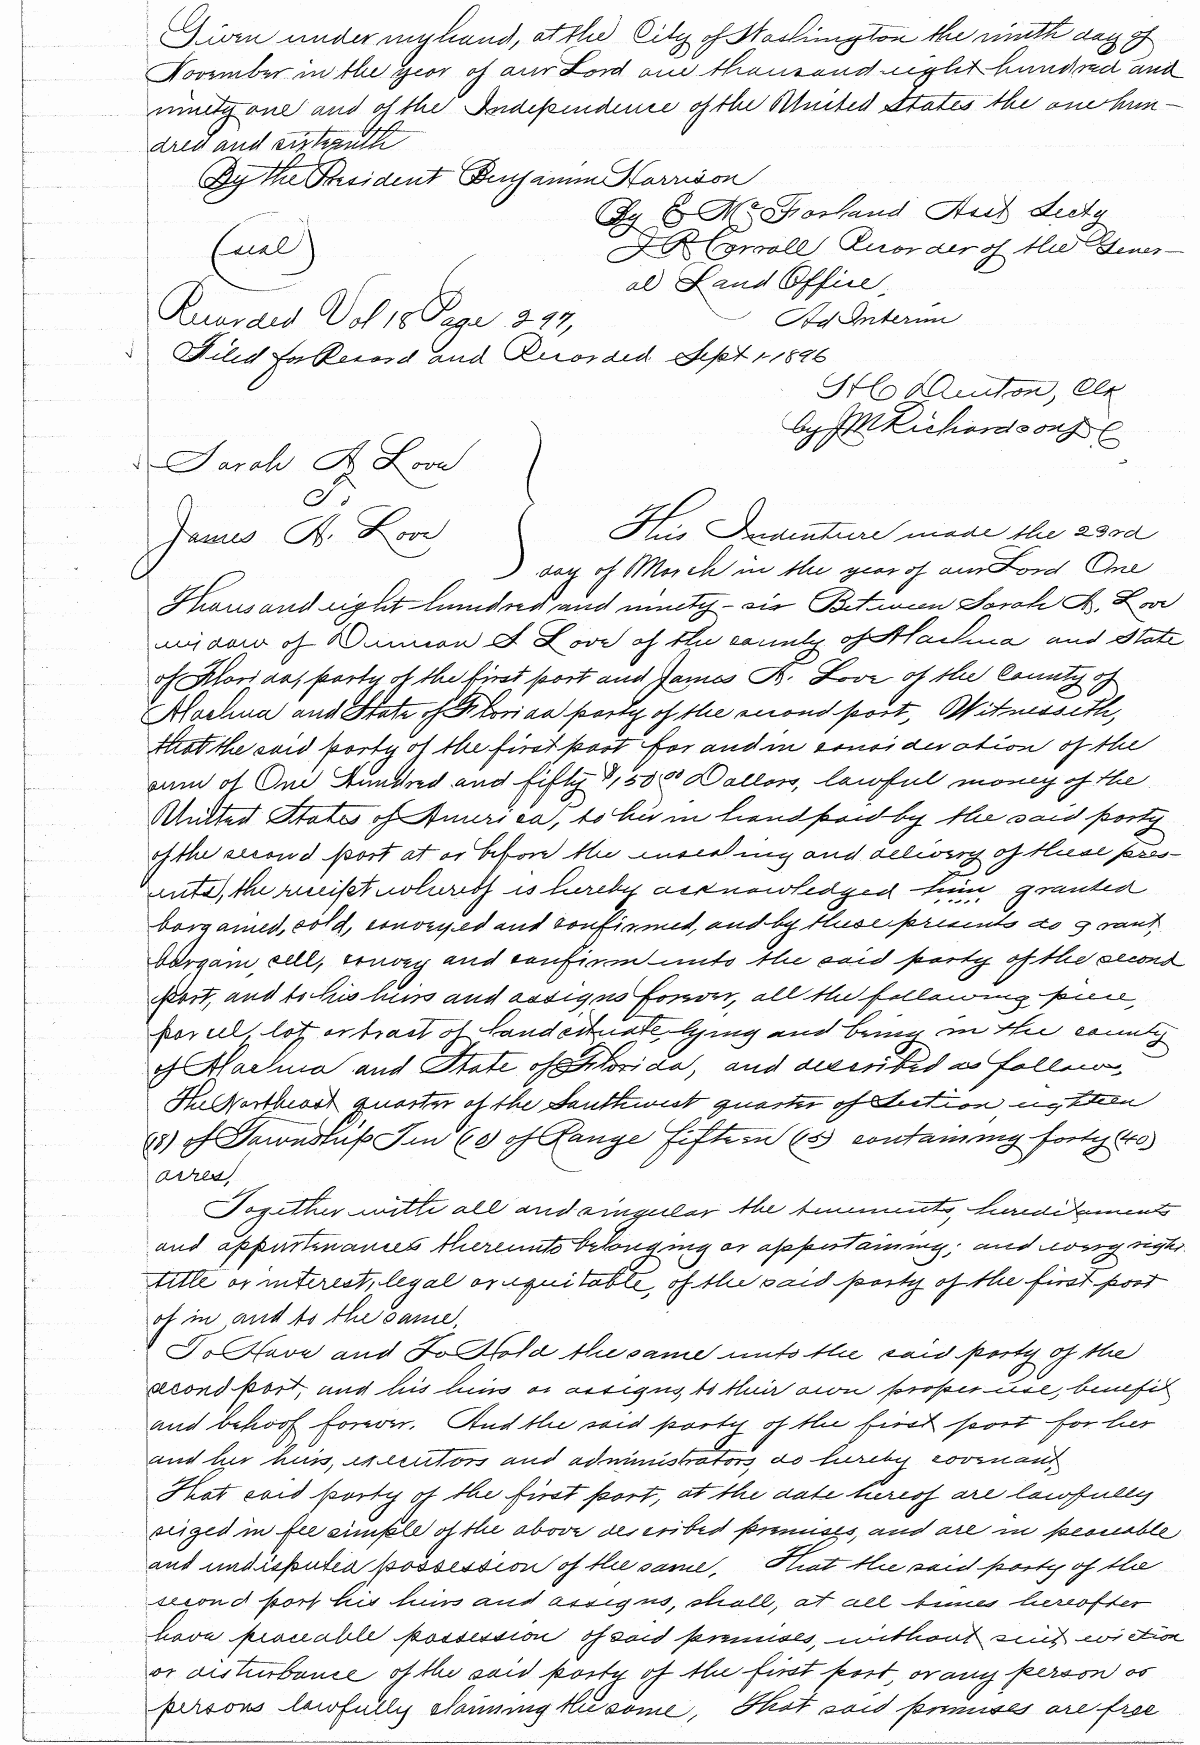 Given under my hand, at the City of Washington the ninth day of
November in the year of our Lord one thousand eight hundred and
ninety one and of the Independence of the United States the one hun-
dred and sixteenth
By the President Benjamin Harrison
By E McFarland Asst Secty
(seal)
J R Conroll Recorder of the Gener-
al Land Office,
Recorded Vol 18 Page 297,
Ad Interim
Filed for Record and Recorded Sept 1-1896
H C Denton, Clk
by J M Richardson D C
Sarah A Love
To
James A. Love
This Indenture made the 23rd
day of March in the year of our Lord One
Thousand eight hundred and ninety-six Between Sarah A. Love
widow of Duncan S Love of the county of Alachua and State
of Florida, party of the first part and James A. Love of the County of
Alachua and State of Florida party of the second part, Witnesseth,
that the said party of the first part for and in consideration of the
sum of One Hundred and fifty $150 00 Dollars, lawful money of the
United States of America, to her in hand paid by the said party
of the second part at or before the ensealing and delivery of these pres-
ents, the receipt whereof is hereby acknowledged him granted
bargained, sold, conveyed and confirmed, and by these presents do grant,
bargain, sell, convey and confirm unto the said party of the second
part, and to his heirs and assigns forever, all the following piece,
parcel, lot or tract of land situate, lying and being in the county
of Alachua and State of Florida, and described as follows,
The Northeast quarter of the Southwest quarter of Section eighteen
(18) of Township Ten (10) of Range fifteen (15) containing forty (40)
acres,
Together with all and singular the tenements, hereditaments
and appurtenances thereunto belonging or appertaining; and every right
title or interest, legal or equitable, of the said party of the first part
of in, and to the same,
To Have and To Hold the same unto the said party of the
second part, and his heirs or assigns, to their own proper use, benefit
and behoof forever. And the said party of the first part for her
and her heirs, executors and administrators, do hereby covenant,
That said party of the first part, at the date hereof are lawfully
seized in fee simple of the above described premises, and are in peaceable
and undisputed possession of the same, That the said party of the
second part his heirs and assigns, shall, at all times hereafter
have peaceable possession of said premises, without suit eviction
or disturbance of the said party of the first part, or any person or
persons lawfully claiming the same, That said premises are free